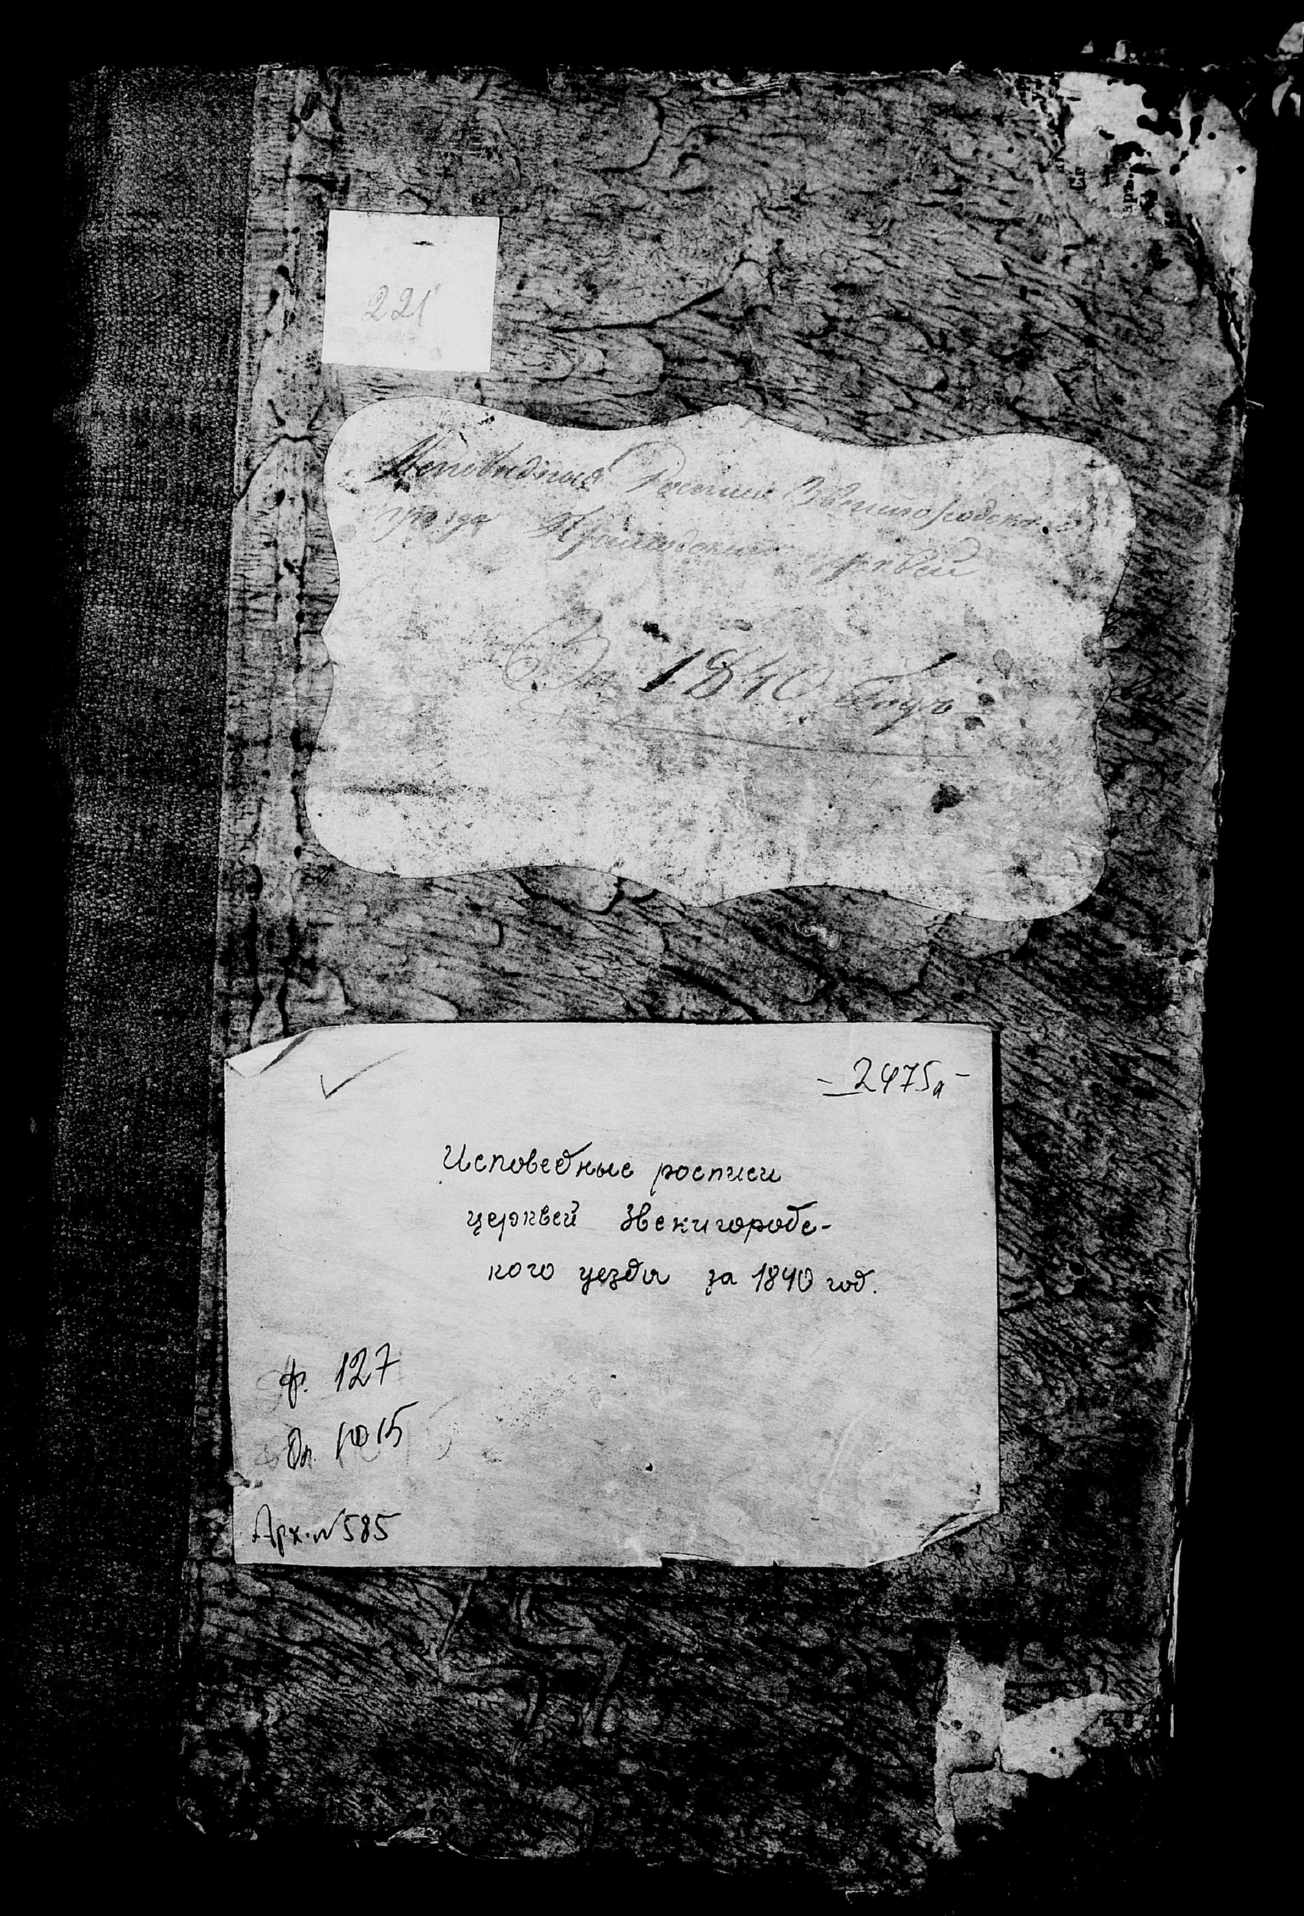 221
Исповѣдныя Росписи Звенигородскаго
уѣзда церквей
За 1840 годъ
- 2475а -
Исповедные росписи
церквей Звенигородс-
кого уезда за 1840 год.
ф. 127
оп. 1015
Арх. № 585